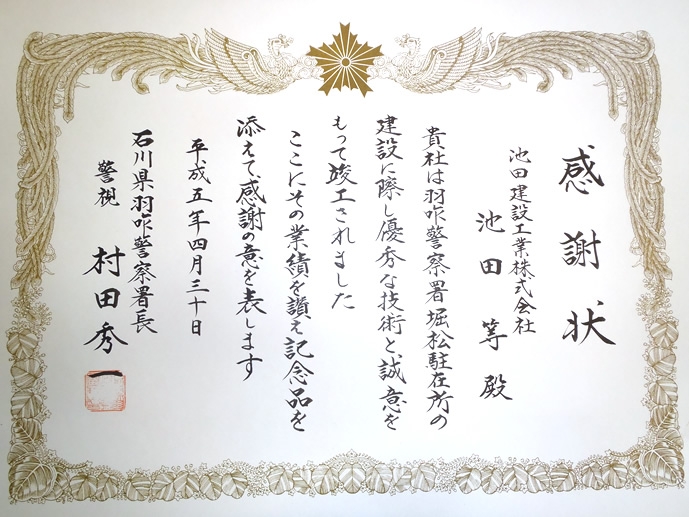 感謝状
池田建設工業株式会社
池田等殿
貴社は羽咋警察署堀松駐在所の
建設に際し優秀な技術と誠意を
もって竣工されました
ここにその業績を讃え記念品を
添えて感謝の意を表します
平成五年四月三十日
石川県羽咋警察署長
警視 村田秀一